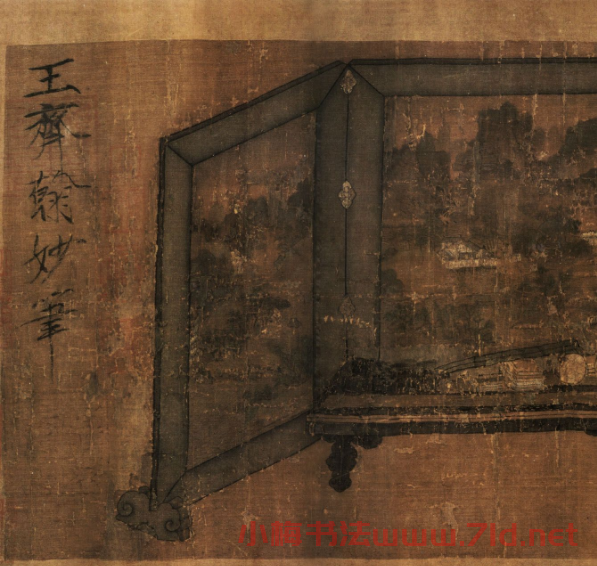 王齊翰妙筆
小梅书法www.71d.net